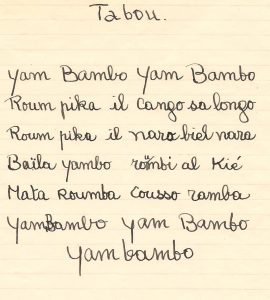 Tabou.
yam Bambo yam Bambo
Roum pika il cango sa longo
Roum pika il naro biel nara
Baïla yambo rombi al Kié
Mata Roumba cousso ramba
yam Bambo yam Bambo
yam bambo